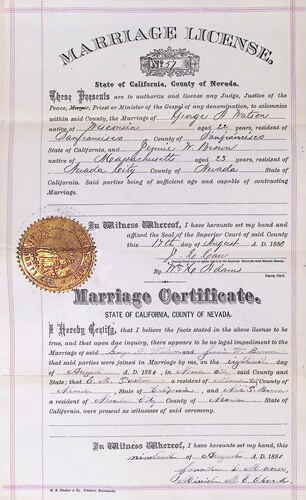 MARRIAGE LICENSE,
No. 57
State of California, County of Nevada.
These Presents are to authorize and license any Judge, Justice of the
Peace, Mayor, Priest or Minister of the Gospel of any denomination, to solemnize
within said County, the Marriage of George A Watson
native of Wisconsin aged 22 years, resident of
Sanfrancisco County of Sanfrancisco
State of California, and Jennie W. Brown
native of Massachusetts aged 23 years, resident of
Nevada City County of Nevada State of
California. Said parties being of sufficient age and capable of contracting
Marriage.
In Witness Whereof, I have hereunto set my hand and
affixed the Seal of the Superior Court of said County
this 17th day of August A. D. 1880
By Wm. K. Adams
Deputy Clerk
Marriage Certificate.
STATE OF CALIFORNIA, COUNTY OF NEVADA.
I Hereby Certify, that I believe the facts stated in the above license to be
true, and that upon due inquiry, there appears to be no legal impediment to the
Marriage of said and
that said parties were joined in Marriage by me, on the eighteenth day of
August A. D. 1880, in Nevada City said County and
State; that a resident of County of
Nevada, State of California, and
a resident of Nevada City County of Nevada State of
California, were present as witnesses of said ceremony.
In Witness Whereof, I have hereunto set my hand, this
nineteenth August A. D. 1880
Minister